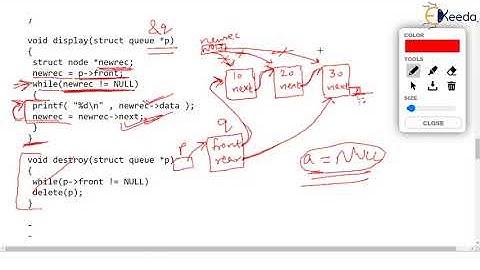 Ekeeda
&q
void display(struct queue *p)
{
struct node *newrec;
newrec = p->front;
while(newrec != NULL)
{
printf( "%d\n" , newrec->data );
newrec = newrec->next;
}
}
void destroy(struct queue *p)
{
while(p->front != NULL)
delete(p);
}
-
-
newrec
10
next
20
next
30
next
q
p
front
rear
a = NULL
COLOR
TOOLS
SIZE
CLOSE